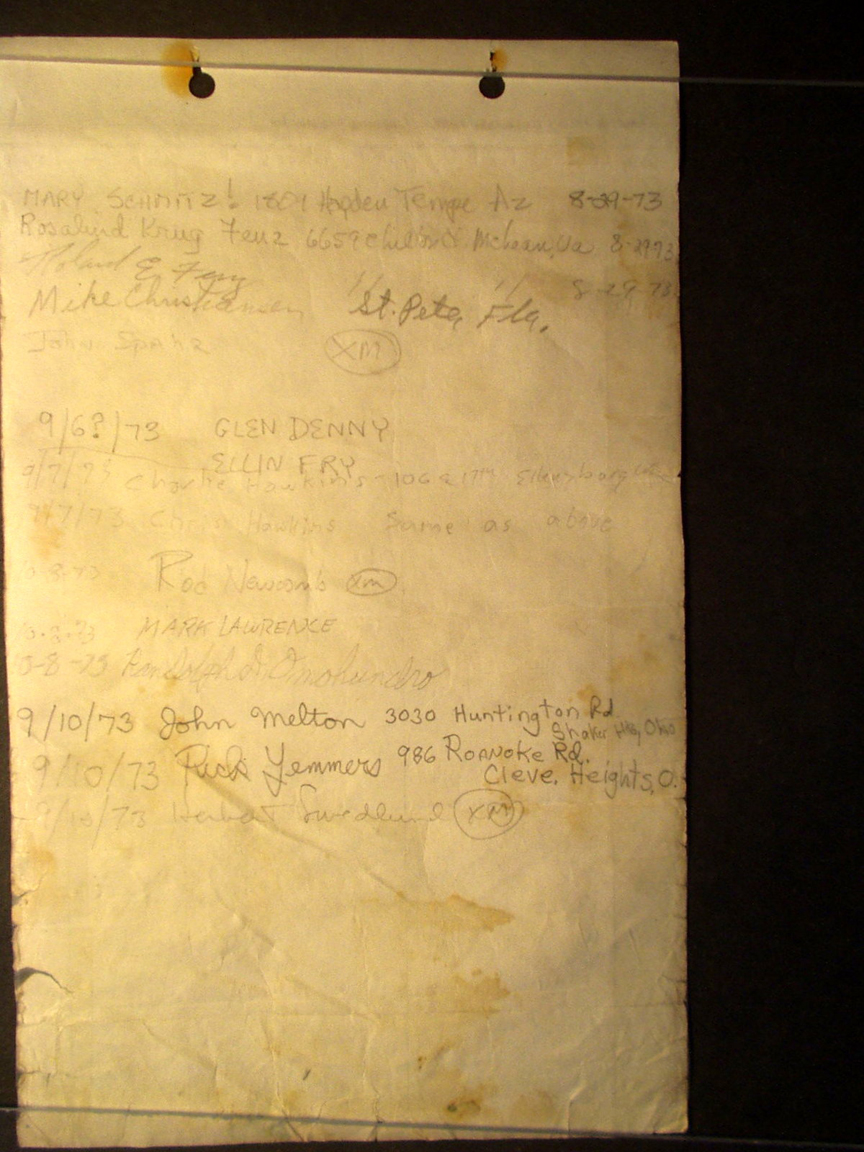 MARY SCHMITZ! 1801 Hayden Tempe Az 8-29-73
Rosalind Krug Fenz 6659 Chilton Ct McLean, Va 8-29 73
E.
Mike Christiansen St. Pete, Fla. 8-29-73
John Spahr XM
9/6?/73 GLEN DENNY
ELLIN FRY
9/7/73 Charlie Hawkins - 106 E 17th Ellensburg
9/7/73 Chris Hawkins Same as above
Rod Newcomb XM
MARK LAWRENCE
Randolph Omohundro
9/10/73 John Melton 3030 Huntington Rd.
Shaker Hts, Ohio
9/10/73 Rick Yemmers 986 Roanoke Rd.
Cleve. Heights, O.
9/10/73 Herbert Swedlund XM